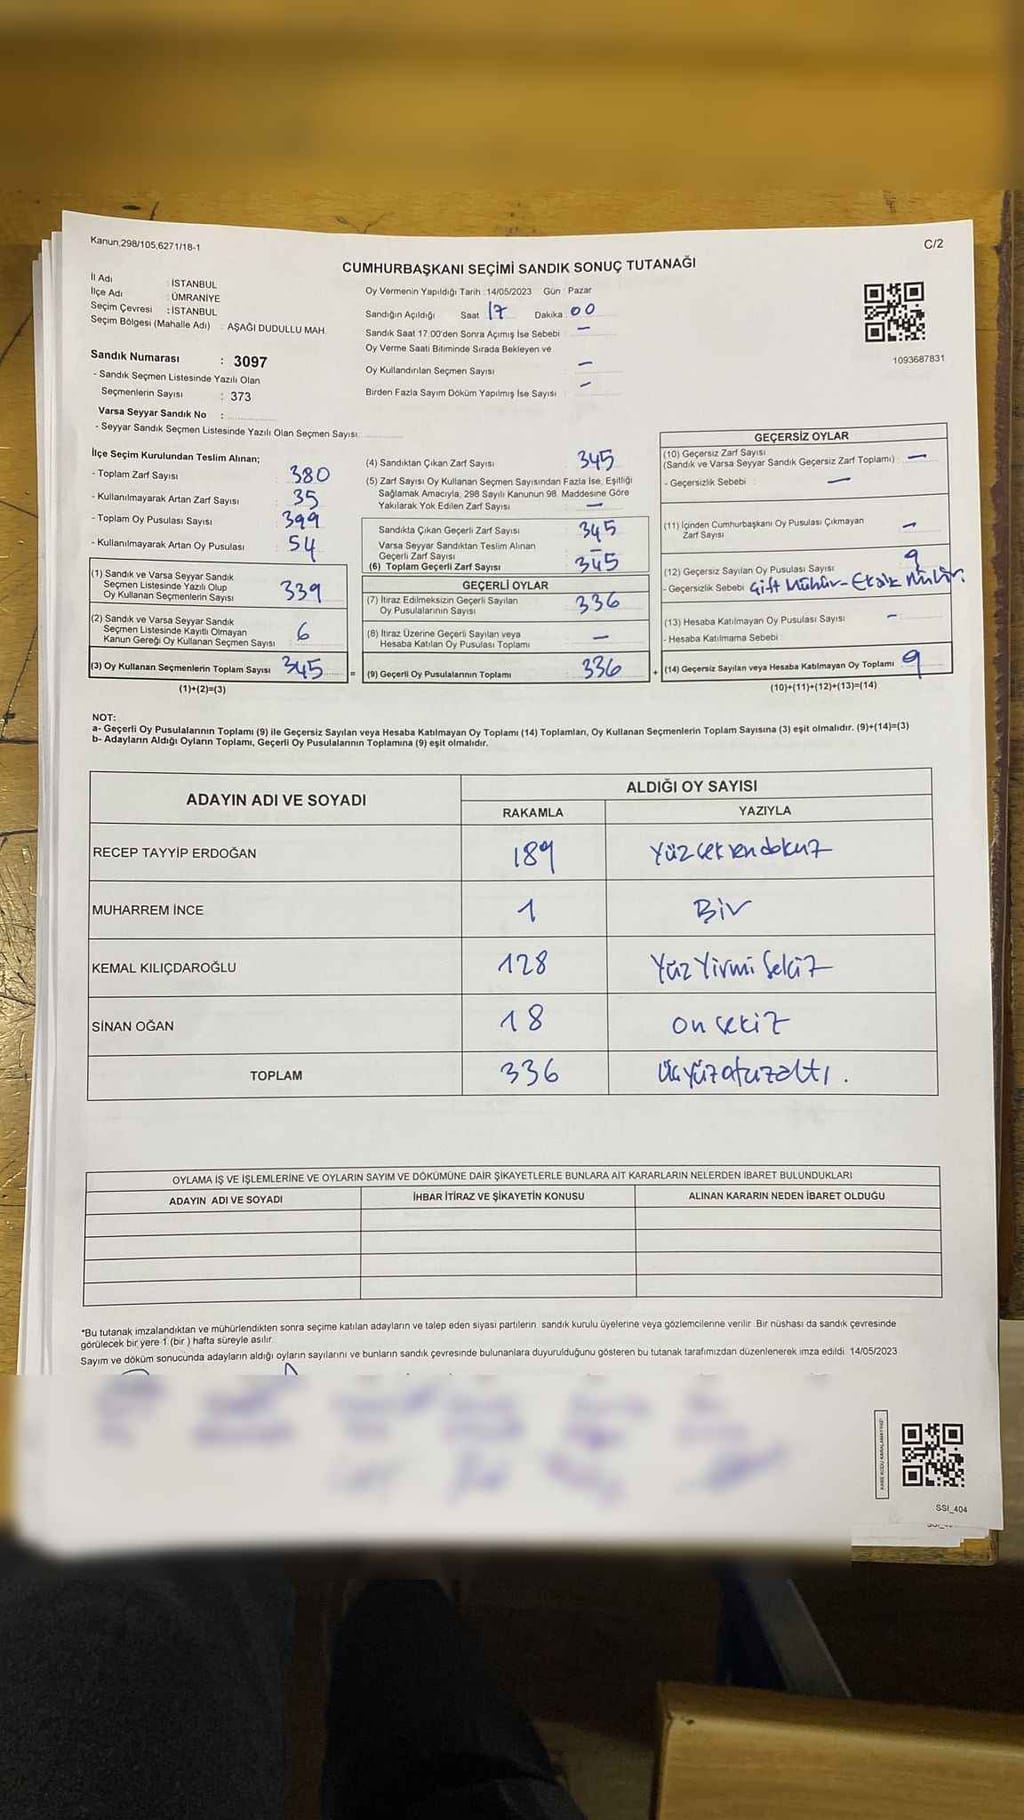 Kanun,298/105,6271/18-1
C/2
CUMHURBAŞKANI SEÇİMİ SANDIK SONUÇ TUTANAĞI
İl Adı : İSTANBUL
İlçe Adı : ÜMRANİYE
Seçim Çevresi : İSTANBUL
Seçim Bölgesi (Mahalle Adı) : AŞAĞI DUDULLU MAH.
Sandık Numarası : 3097
- Sandık Seçmen Listesinde Yazılı Olan
Seçmenlerin Sayısı : 373
Varsa Seyyar Sandık No :
- Seyyar Sandık Seçmen Listesinde Yazılı Olan Seçmen Sayısı:
Oy Vermenin Yapıldığı Tarih : 14/05/2023 Gün : Pazar
Sandığın Açıldığı Saat 17 Dakika : 00
Sandık Saat 17:00'den Sonra Açımış İse Sebebi : -
Oy Verme Saati Bitiminde Sırada Bekleyen ve
Oy Kullandırılan Seçmen Sayısı : -
Birden Fazla Sayım Döküm Yapılmış İse Sayısı : -
1093687831
İlçe Seçim Kurulundan Teslim Alınan;
- Toplam Zarf Sayısı : 380
- Kullanılmayarak Artan Zarf Sayısı : 35
- Toplam Oy Pusulası Sayısı : 399
- Kullanılmayarak Artan Oy Pusulası : 54
(1) Sandık ve Varsa Seyyar Sandık
Seçmen Listesinde Yazılı Olup
Oy Kullanan Seçmenlerin Sayısı 339
(2) Sandık ve Varsa Seyyar Sandık
Seçmen Listesinde Kayıtlı Olmayan
Kanun Gereği Oy Kullanan Seçmen Sayısı 6
(3) Oy Kullanan Seçmenlerin Toplam Sayısı 345
(1)+(2)=(3)
(4) Sandıktan Çıkan Zarf Sayısı : 345
(5) Zarf Sayısı Oy Kullanan Seçmen Sayısından Fazla İse, Eşitliği
Sağlamak Amacıyla, 298 Sayılı Kanunun 98. Maddesine Göre
Yakılarak Yok Edilen Zarf Sayısı : -
Sandıkta Çıkan Geçerli Zarf Sayısı : 345
Varsa Seyyar Sandıktan Teslim Alınan
Geçerli Zarf Sayısı : -
(6) Toplam Geçerli Zarf Sayısı : 345
GEÇERLİ OYLAR
(7) İtiraz Edilmeksizin Geçerli Sayılan
Oy Pusulalarının Sayısı : 336
(8) İtiraz Üzerine Geçerli Sayılan veya
Hesaba Katılan Oy Pusulası Toplamı : -
(9) Geçerli Oy Pusulalarının Toplamı : 336
=
+
GEÇERSİZ OYLAR
(10) Geçersiz Zarf Sayısı
(Sandık ve Varsa Seyyar Sandık Geçersiz Zarf Toplamı) : -
- Geçersizlik Sebebi : -
(11) İçinden Cumhurbaşkanı Oy Pusulası Çıkmayan
Zarf Sayısı : -
(12) Geçersiz Sayılan Oy Pusulası Sayısı : 9
- Geçersizlik Sebebi : Çift Mühür-Eksik Mühür.
(13) Hesaba Katılmayan Oy Pusulası Sayısı : -
- Hesaba Katılmama Sebebi :
(14) Geçersiz Sayılan veya Hesaba Katılmayan Oy Toplamı : 9
(10)+(11)+(12)+(13)=(14)
NOT:
a- Geçerli Oy Pusulalarının Toplamı (9) ile Geçersiz Sayılan veya Hesaba Katılmayan Oy Toplamı (14) Toplamları, Oy Kullanan Seçmenlerin Toplam Sayısına (3) eşit olmalıdır. (9)+(14)=(3)
b- Adayların Aldığı Oyların Toplamı, Geçerli Oy Pusulalarının Toplamına (9) eşit olmalıdır.
ADAYIN ADI VE SOYADI ALDIĞI OY SAYISI
RAKAMLA YAZIYLA
RECEP TAYYİP ERDOĞAN 189 Yüzseksendokuz
MUHARREM İNCE 1 Bir
KEMAL KILIÇDAROĞLU 128 Yüz Yirmi Sekiz
SİNAN OĞAN 18 on sekiz
TOPLAM 336 üçyüzotuzaltı.
OYLAMA İŞ VE İŞLEMLERİNE VE OYLARIN SAYIM VE DÖKÜMÜNE DAİR ŞİKAYETLERLE BUNLARA AİT KARARLARIN NELERDEN İBARET BULUNDUKLARI
ADAYIN ADI VE SOYADI İHBAR İTİRAZ VE ŞİKAYETİN KONUSU ALINAN KARARIN NEDEN İBARET OLDUĞU
*Bu tutanak imzalandıktan ve mühürlendikten sonra seçime katılan adayların ve talep eden siyasi partilerin sandık kurulu üyelerine veya gözlemcilerine verilir. Bir nüshası da sandık çevresinde
görülecek bir yere 1 (bir ) hafta süreyle asılır.
Sayım ve döküm sonucunda adayların aldığı oyların sayılarını ve bunların sandık çevresinde bulunanlara duyurulduğunu gösteren bu tutanak tarafımızdan düzenlenerek imza edildi. 14/05/2023
SSI_404